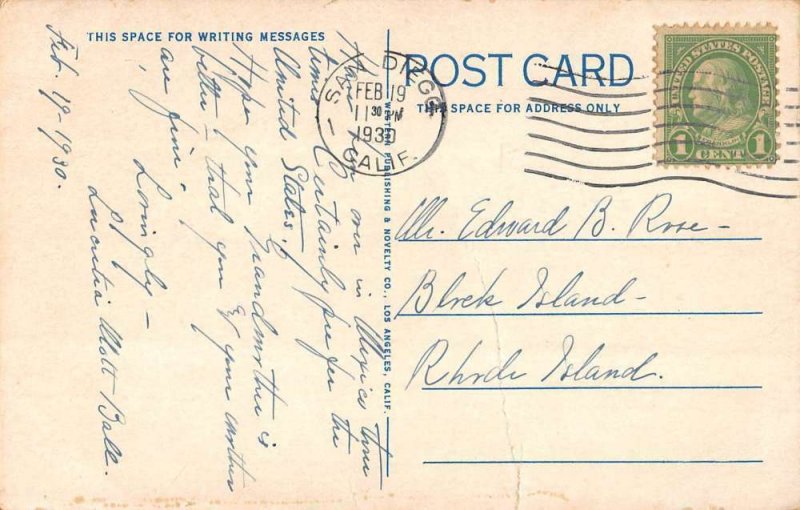 THIS SPACE FOR WRITING MESSAGES
Feb. 19-1930.
Have been over in Mexico three
times - Certainly prefer the
United States!
Hope your Grandmother is
better - that you & your mother
are fine.
Lovingly -
Lucretia Mott Ball.
WESTERN PUBLISHING & NOVELTY CO., LOS ANGELES, CALIF.
SAN DIEGO
FEB 19
11 30 PM
1930
CALIF.
POST CARD
THIS SPACE FOR ADDRESS ONLY
UNITED STATES POSTAGE
FRANKLIN
1 CENT 1
Mr. Edward B. Rose -
Block Island -
Rhode Island.